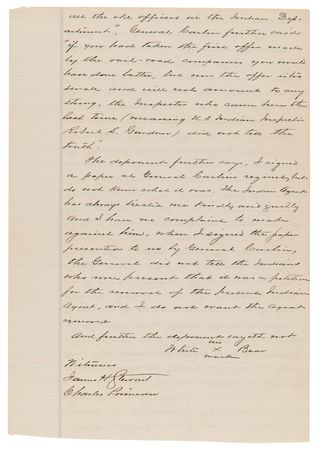 all the old officers in the Indian Dep-
artment", General Carlin further said
"if you had taken the first offer made
by the rail-road companies you would
have done better, but now the offer is too
small and will not amount to any
thing, the Inspector who came here the
last time (meaning U.S. Indian Inspector
Robert S. Gardner) did not tell the
truth".
The deponent further says, I signed
a paper at General Carlins request, but
do not know what it was, The Indian Agent
has always treated me kindly and justly
and I have no complaint to make
against him, when I signed the paper
presented to us by General Carlin,
the General did not tell the Indians
who were present that it was a petition
for the removal of the present Indian
Agent, and I do not want the Agent
removed
And further the deponent sayeth not
his
White X Bear
mark
Witness
James H. Stewart
Charles Primeau